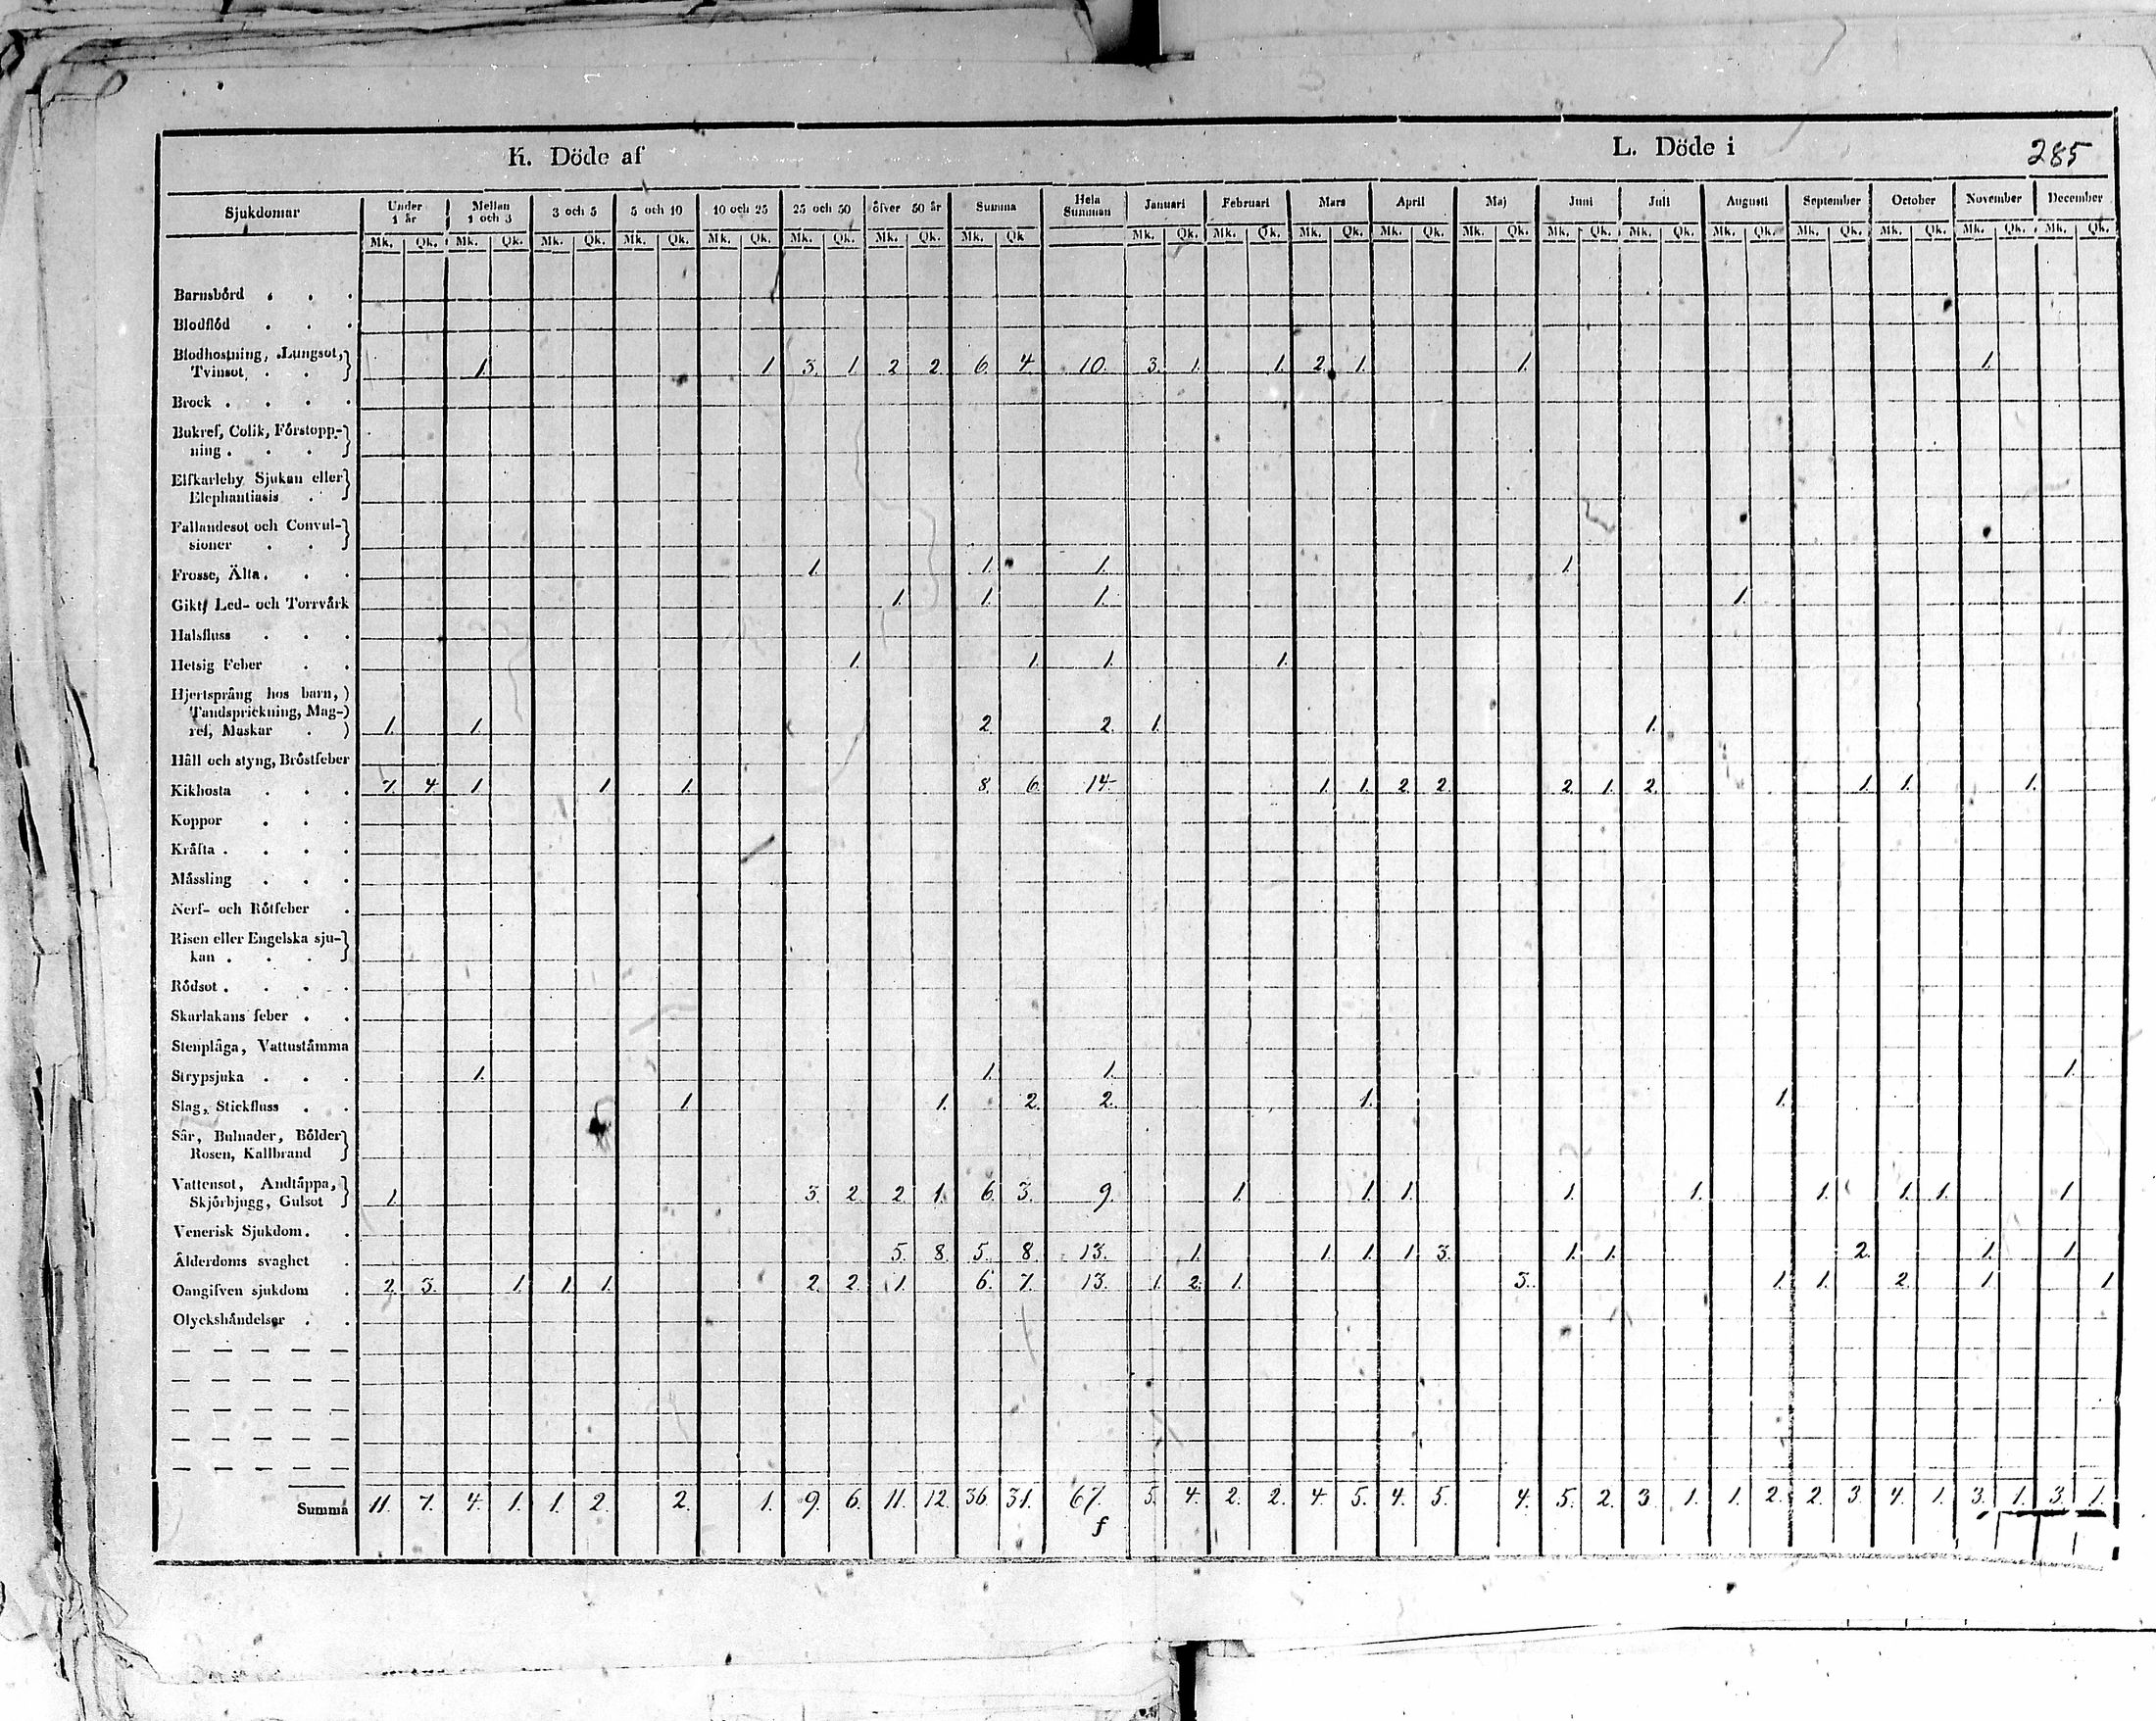 K. Döde af L. Döde i 285
Sjukdomar Under 1 år Mellan 1 och 3 3 och 5 5 och 10 10 och 25 25 och 50 öfver 50 år Summa Hela Summan Januari Februari Mars April Maj Juni Juli Augusti September October November December
Mk. Qk. Mk. Qk. Mk. Qk. Mk. Qk. Mk. Qk. Mk. Qk. Mk. Qk. Mk. Qk Mk. Qk. Mk. Qk. Mk. Qk. Mk. Qk. Mk. Qk. Mk. Qk. Mk. Qk. Mk. Qk. Mk. Qk. Mk. Qk. Mk. Qk. Mk. Qk.
Barnsbörd . . .
Blodflöd . . .
Blodhostning, Lungsot,
Tvinsot . . 1. 1. 3. 1. 2. 2. 6. 4. 10. 3. 1. 1. 2. 1. 1. 1.
Brock . . . .
Bukref, Colik, Förstopp-
ning . . .
Elfkarleby Sjukan eller
Elephantiasis .
Fallandesot och Convul-
sioner . .
Frosse, Älta . . . 1. 1. 1. 1.
Gikt, Led- och Torrvärk 1. 1. 1. 1.
Halsfluss . . .
Hetsig Feber . . 1. 1. 1. 1.
Hjertsprång hos barn,
Tandsprickning, Mag-
ref, Maskar . 1. 1. 2. 2. 1. 1.
Håll och styng, Bröstfeber
Kikhosta . . . 7. 4. 1. 1. 1. 8. 6. 14. 1. 1. 2. 2. 2. 1. 2. 1. 1. 1.
Koppor . . .
Kräfta . . . .
Mässling . . .
Nerf- och Rötfeber .
Risen eller Engelska sju-
kan . . .
Rödsot . . . .
Skarlakans feber . .
Stenplåga, Vattustämma
Strypsjuka . . . 1. 1. 1. 1.
Slag, Stickfluss . . 1. 1. 2. 2. 1. 1.
Sår, Bulnader, Bölder
Rosen, Kallbrand
Vattensot, Andtäppa,
Skjörbjugg, Gulsot 1. 3. 2. 2. 1. 6. 3. 9. 1. 1. 1. 1. 1. 1. 1. 1. 1.
Venerisk Sjukdom . .
Ålderdoms svaghet . 5. 8. 5. 8. 13. 1. 1. 1. 1. 3. 1. 1. 2. 1. 1.
Oangifven sjukdom . 2. 3. 1. 1. 1. 2. 2. 1. 6. 7. 13. 1. 2. 1. 3. 1. 1. 2. 1. 1.
Olyckshändelser . .
Summa 11. 7. 4. 1. 1. 2. 2. 1. 9. 6. 11. 12. 36. 31. 67. 5. 4. 2. 2. 4. 5. 4. 5. 4. 5. 2. 3. 1. 1. 2. 2. 3. 4. 1. 3. 1. 3. 1.
f